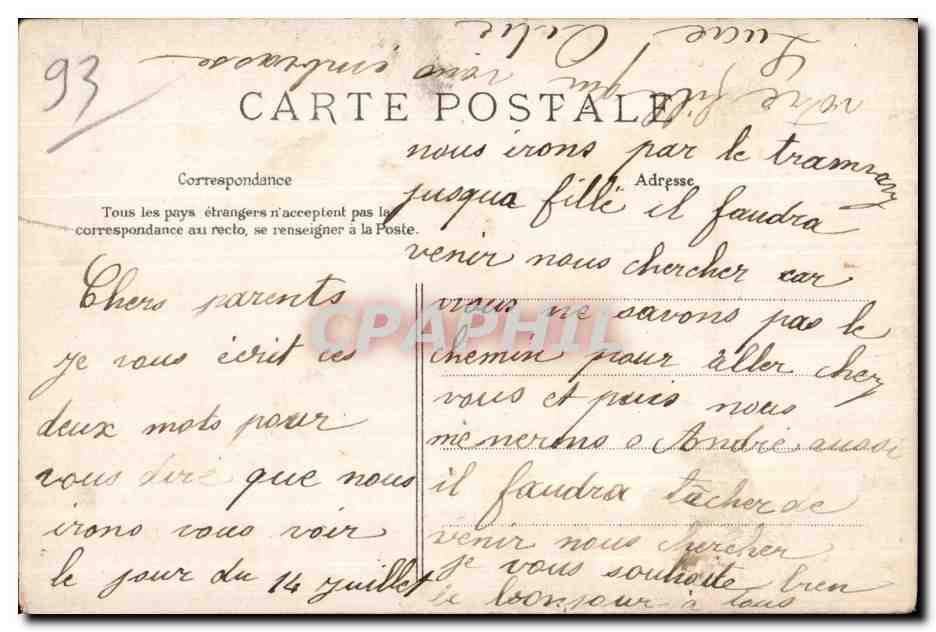 93
CARTE POSTALE
Correspondance
Tous les pays étrangers n'acceptent pas la
correspondance au recto, se renseigner à la Poste.
Adresse
Chers parents
je vous écrit ces
deux mots pour
vous dire que nous
irons vous voir
le jour du 14 juillet
nous irons par le tramway
jusqua fillé il faudra
venir nous chercher car
nous ne savons pas le
chemin pour aller chez
vous et puis nous
mènerons André aussi
il faudra tacher de
venir nous chercher
je vous souhaite bien
le bonjour à tous
votre fille qui vous embrasse
CPAPHIL